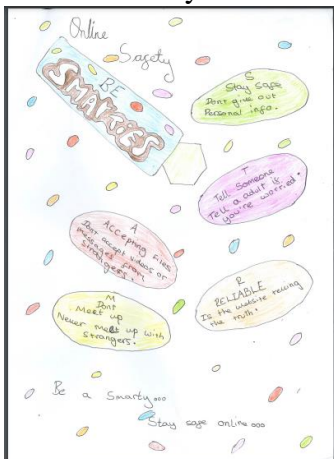 Online
Sagety
BE
SMARTIES
S
Stay safe
Dont give out
Personal info.
T
Tell Someone
Tell a adult if
you're worried.
A
Accepting files
Dont accept videos or
messages from
strangers.
R
RELIABLE
Is the website telling
the truth.
M
Dont
Meet up
Never meet up with
strangers.
Be a Smarty...
Stay safe online...